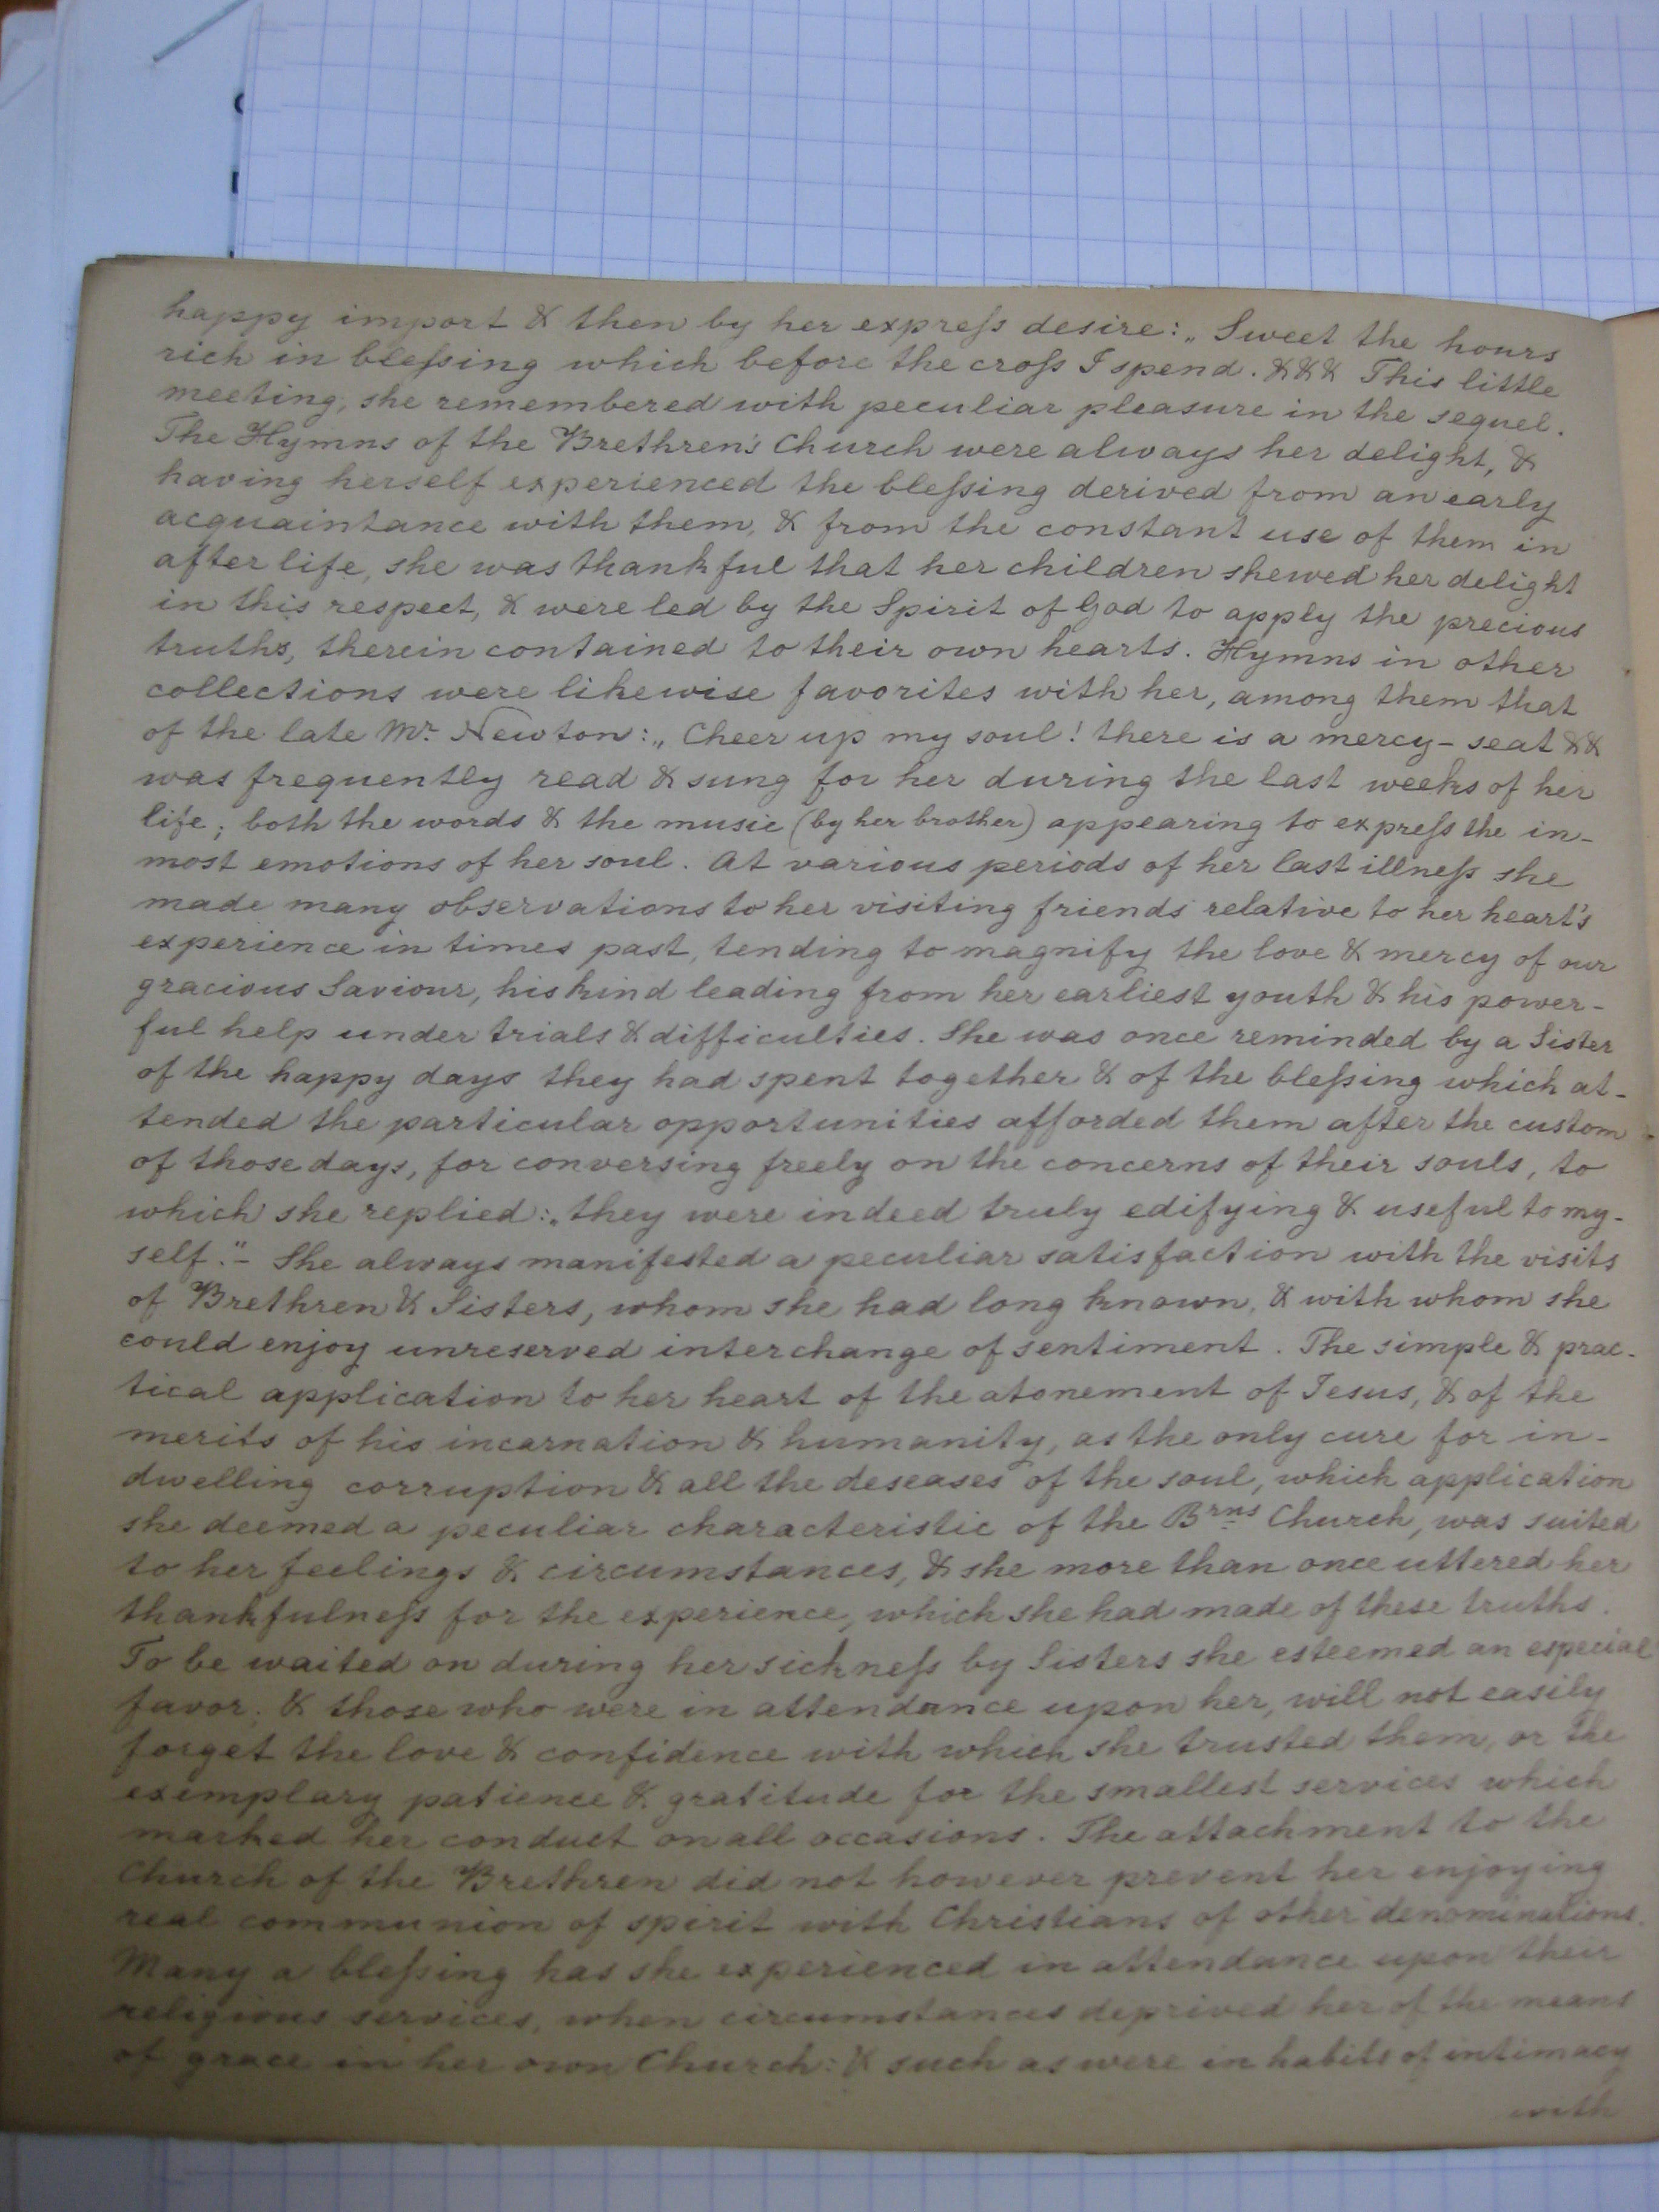 happy import & then by her expreſs desire: „Sweet the hours
rich in bleſsing which before the croſs I spend. &&& This little
meeting, she remembered with peculiar pleasure in the sequel.
The Hymns of the Brethren's Church were always her delight, &
having herself experienced the bleſsing derived from an early
acquaintance with them, & from the constant use of them in
after life, she was thankful that her children shewed her delight
in this respect, & were led by the Spirit of God to apply the precious
truths, therein contained to their own hearts. Hymns in other
collections were likewise favorites with her, among them that
of the late Mr. Newton: „Cheer up my soul! there is a mercy-seat &&
was frequently read & sung for her during the last weeks of her
life; both the words & the music (by her brother) appearing to expreſs the in-
most emotions of her soul. At various periods of her last illneſs she
made many observations to her visiting friends relative to her heart's
experience in times past, tending to magnify the love & mercy of our
gracious Saviour, his kind leading from her earliest youth & his power-
ful help under trials & difficulties. She was once reminded by a Sister
of the happy days they had spent together & of the bleſsing which at-
tended the particular opportunities afforded them after the custom
of those days, for conversing freely on the concerns of their souls, to
which she replied: „they were indeed truly edifying & useful to my-
self."- She always manifested a peculiar satisfaction with the visits
of Brethren & Sisters, whom she had long known, & with whom she
could enjoy unreserved interchange of sentiment. The simple & prac-
tical application to her heart of the atonement of Jesus, & of the
merits of his incarnation & humanity, as the only cure for in-
dwelling corruption & all the deseases of the soul, which application
she deemed a peculiar characteristic of the Brns Church, was suited
to her feelings & circumstances, & she more than once uttered her
thankfulneſs for the experience, which she had made of these truths.
To be waited on during her sickneſs by Sisters she esteemed an especial
favor; & those who were in attendance upon her, will not easily
forget the love & confidence with which she trusted them, or the
exemplary patience & gratitude for the smallest services which
marked her conduct on all occasions. The attachment to the
Church of the Brethren did not however prevent her enjoying
real communion of spirit with Christians of other denominations.
Many a bleſsing has she experienced in attendance upon their
religious services, when circumstances deprived her of the means
of grace in her own Church: & such as were in habits of intimacy
with